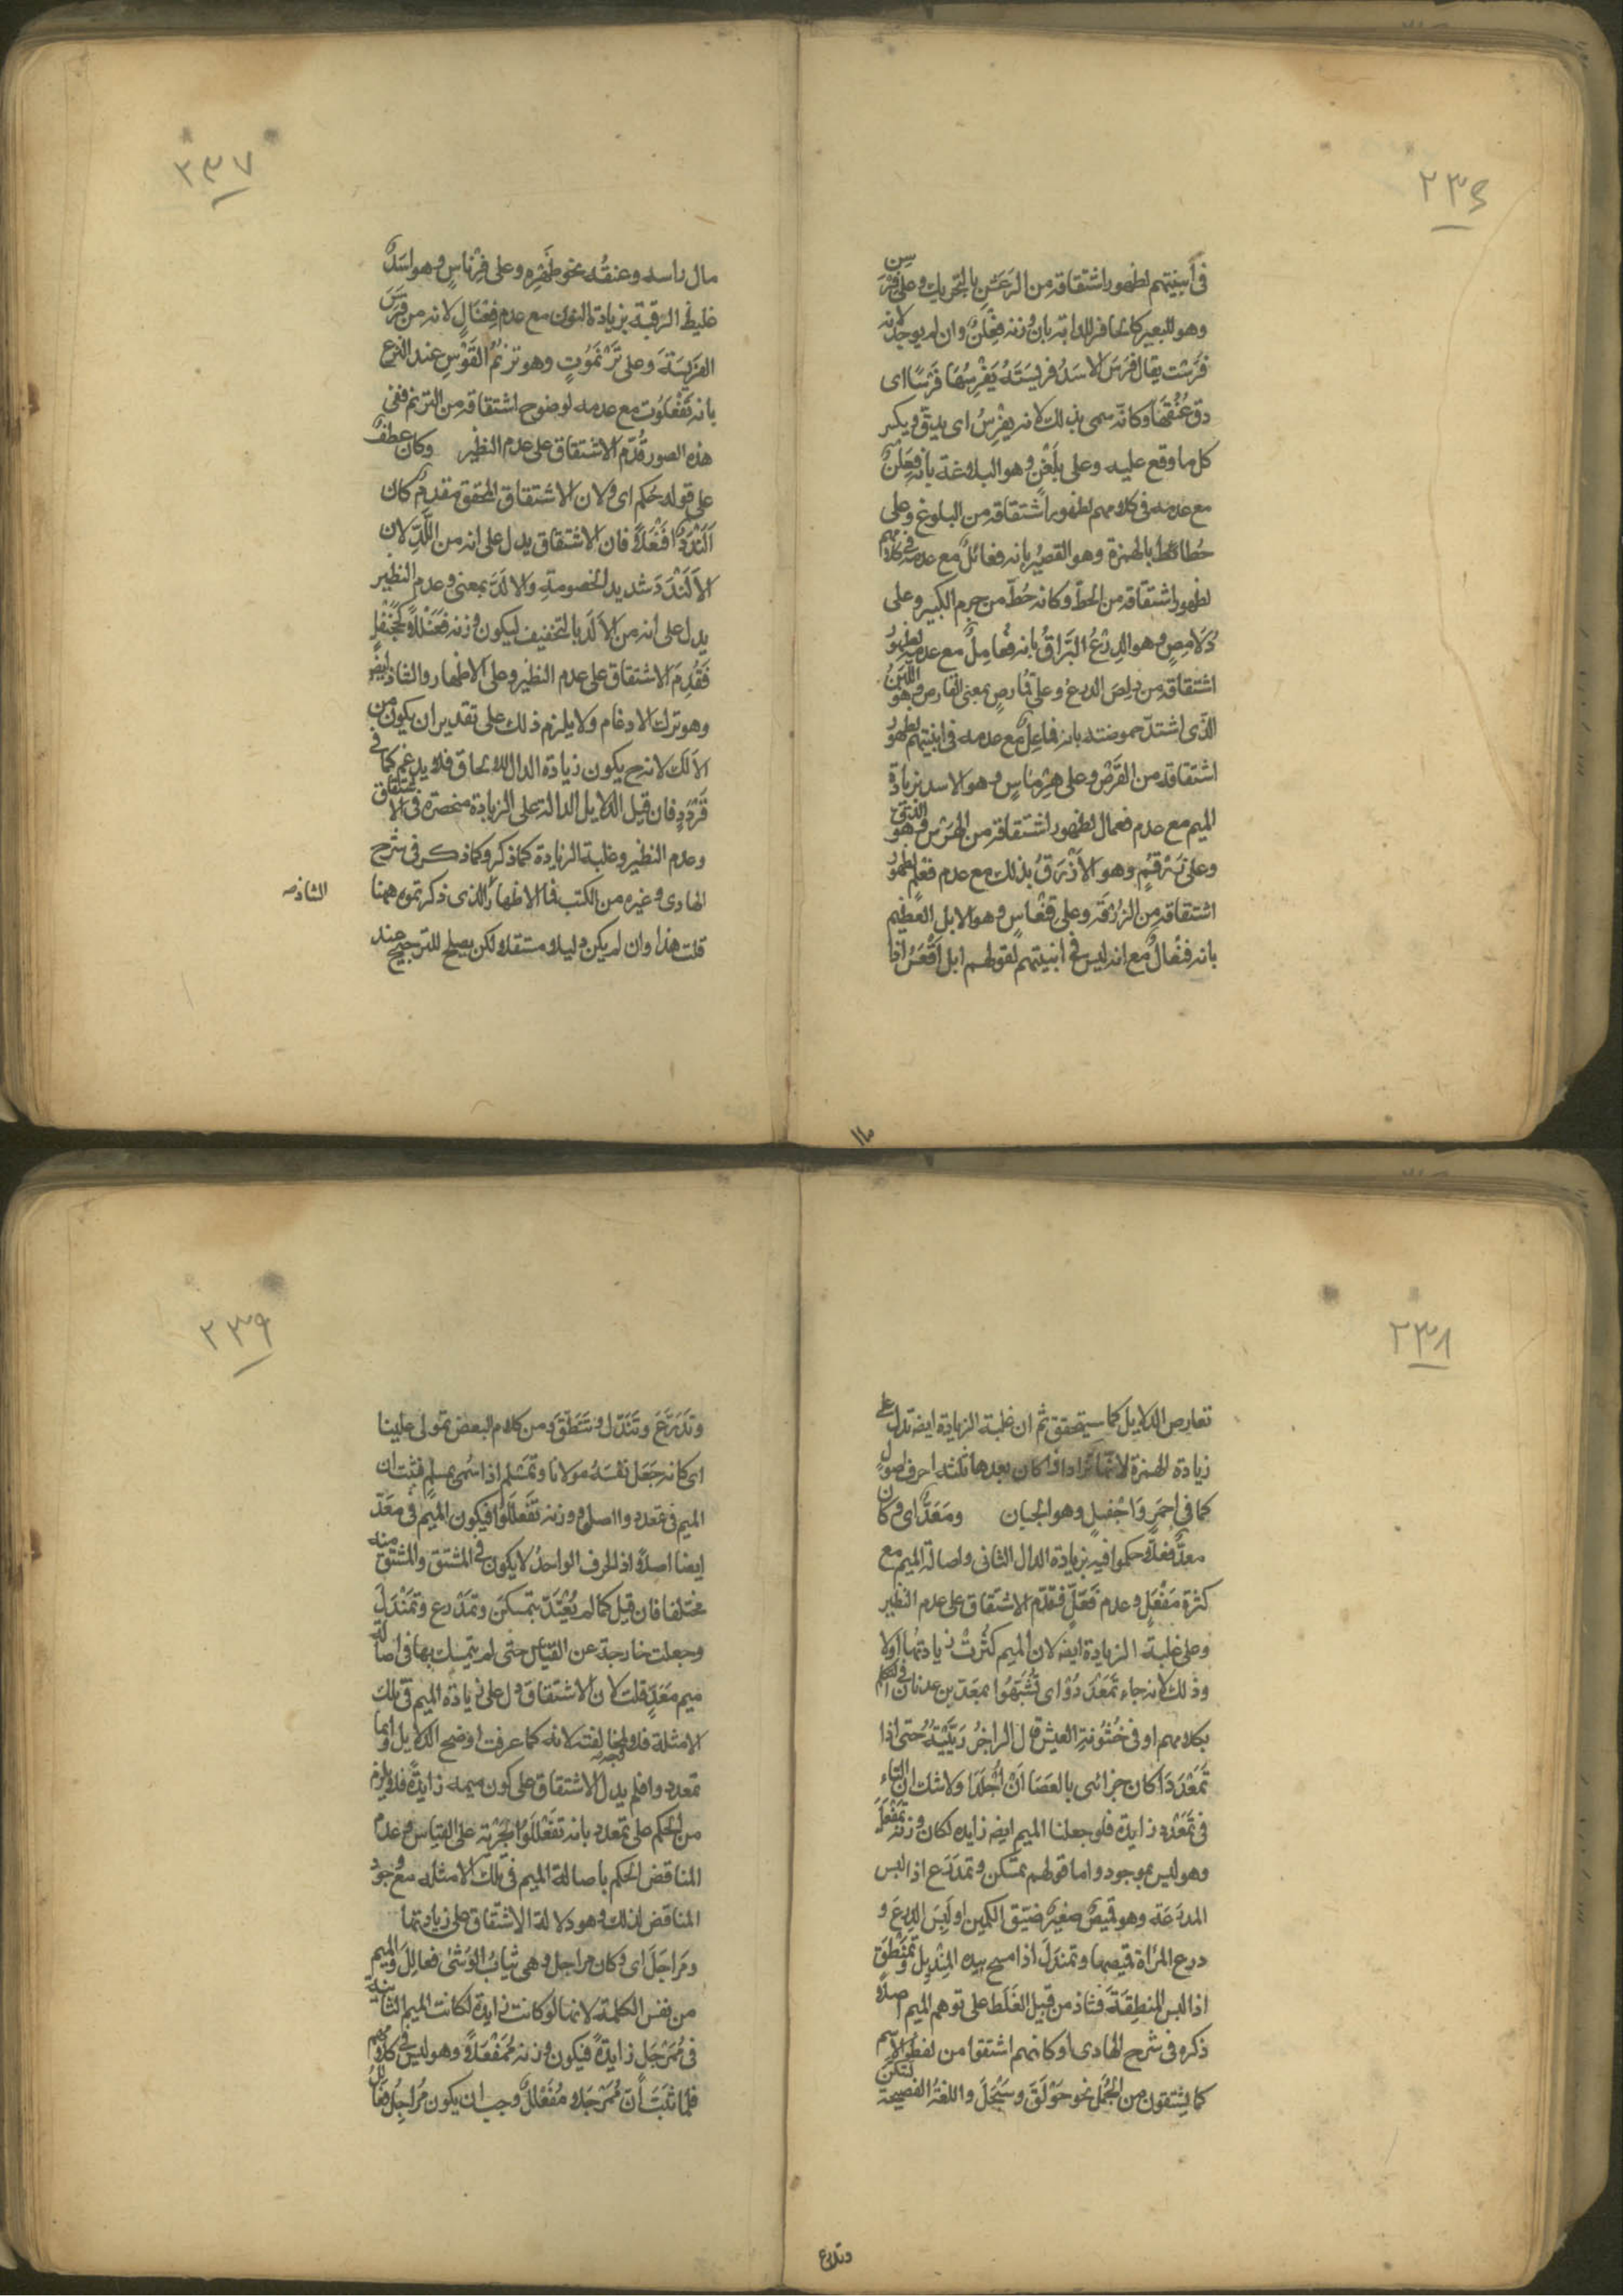 ٢٣٦
فى أبنيتهم لظهور اشتقاقه من الرَعَشِ بالتحريك وعلى فِرْسِنٍ
وهو للبعير كالحافر للدابة بان وزنه فِعْلِنٌ وان لم يوجد لانه
فرسَت يقال فَرَسَ الاسَدُ فريسَتَهُ يَفْرِسُهَا فَرْسًا اى
دق عُنُقَهَا وكانّه سمى بذلك لانه يفرِسُ اى يدقّ ويكسر
كل ما وقع عليه وعلى بِلَغْنٍ وهو البلاغة بانه فِعَلْنٌ
مع عدمه فى كلامهم لظهور اشتقاقه من البلوغ وعلى
حُطائطٍ بالهمزة وهو القصيرُ بانه فعائلٌ مع عدمه فى كلامهم
لظهور اشتقاقه من الحطّ وكانه حُطّ من جرم الكبير وعلى
دُلامِصٍ وهو الدِرْعُ البَرّاقُ بانه فُعامِلٌ مع عدمه لظهور
اشتقاقه من دلِصَ الدرعُ وعلى قُمارصٍ بمعنى القارص وهو اللَبَنُ
الذى اشتدّ حموضته بانه فماعِلٌ مع عدمه فى ابنيتهم لظهور
اشتقاقه من القَرْصِ وعلى هِرْماسٍ وهو الاسد بزيادة
الميم مع عدم فعمال لظهور اشتقاقه من الهَرْسِ وهو الدقّ
وعلى زُرْقُمٍ وهو الأزْرَقُ بذلك مع عدم فعلم لظهور
اشتقاقه من الزرْقَةِ وعلى قِنْعاسٍ وهو الابل العظيم
بانه فِنْعالٌ مع انه ليس فى ابنيتهم لقولهم ابل اَقْعَسُ اذا
٢٣٧
مال راسه وعنقُه نحو ظَهْرِهِ وعلى فِرْناسٍ وهو اسَدٌ
غليظ الرَقَبَة بزيادة النون مع عدم فِعْنَالٍ لانه من فَرَسَ
الفريسَةَ وعلى تَرْنَمُوتٍ وهو ترنّمُ القَوْسِ عند النزع
بانه تَفْعَلُوت مع عدمه لوضوح اشتقاقه من الترنم ففى
هذه الصور قُدّم الاشتقاق على عدم النظير وكان عطفٌ
على قوله حُكِم اى ولان الاشتقاق المحقق مقدمٌ كان
اَلَنْدَدٌ افَنْعَلاً فان الاشتقاق يدل على انه من اللَّدِّ لان
الاَلَنْدَدَ شديد الخصومةِ والالَدّ بمعنى وعدم النظير
يدل على انه من الاَلَد بالتخفيف ليكون وزنه فَعَنْلَلاً كجَحَنْفَلٍ
فَقُدِمَ الاشتقاق على عدم النظير وعلى الاظهار والشاذ ايضً
وهو ترك الادغام ولا يلزم ذلك على تقدير ان يكون من
الاَلَد لانه ح يكون زيادة الدال للالحاق فلا يدغم كما فى
قَرْدَدٍ فان قيل الدلايل الدالة على الزيادة منحصرة فى الاشتقاق
وعدم النظير وغلبة الزيادة كما ذكر وكما ذكر فى شرح
الهادى وغيره من الكتب فما الاظهارُ الذى ذكرتموه ههنا
الشاذ صه
قلت هذا وان لم يكن دليلا مستقلا لكن يصلح للترجيح عند
٢٣٨
تعارض الدلايل كما سيتحقق ثم ان غلبة الزيادة ايضه تدل على
زيادة الهمزة لانها تزاد اذا كان بعدها ثلثة احرف اصول
كما فى احمَرٍ وَاجْفيلٍ وهو الجبان ومَعَدٌّ اى وكان
معدٌّ فعلاًّ حكموا فيه بزيادة الدال الثانى واصالة الميم مع
كثرة مَفْعَلٍ وعدم فَعَلٍّ فقدّم الاشتقاق على عدم النظير
وعلى غلبة الزيادة ايضه لان الميم كثُرَتْ زيادتها اولا
وذلك لانه جاء تَمَعْدَدُوْا اى تُشُبِّهُوا بمعَدّ بن عدنان فى التكلم
بكلامهم او فى خُشُونةِ العيش قال الراجزُ رَبَّيْتُهُ حتى اذا
تَمَعْدَدَا كان جزائى بالعَصَا اَنْ اُجْلَدَا ولا شك ان التاء
فى تَمَعْدد زايدة فلو جعلنا الميم ايضه زايده لكان وزنه تَمَفْعَلَ
وهو ليس بموجود واما قولهم تمسكن وتمدَرَع اذا لبس
المدرَعَة وهو قميصٌ صغيرٌ ضيّق الكمين او لَبِسَ الدِرعَ و
درع المرْاة قميصها وتمندَلَ اذا مسح بيده المِنْدِيلَ وتمَنْطَقَ
اذا لبس المنطِقَةَ فشاذ من قبيل الغَلَط على توهم الميم اصلاً
ذكره فى شرح الهادى او كانهم اشتقوا من لفظ الاسم
كما يشتقون من الجُمَل نحو حَوْلَقَ وسَبْحَلَ واللغةُ الفصيحة تسَكّنَ
وتدرع
٢٣٩
وتَدَرَّعَ وتَنَدّل وتَنَطّقَ ومن كلام البعض تمولى علينا
اى كانه جَعَل نفسَهُ مولانا وتمَسْلَم اذا سُمى بمسلمٍ فثبت ان
الميم فى تمعددوا اصل ووزنه تَفَعْلَلُوا فيكون الميمُ فى معَدّ
ايضا اصلاً اذ الحرف الواحد لا يكون فى المشتق والمشتق منه
مختلفا فان قيل كما لم يُعْتَدّ بتمسكن وتمَدْرع وتمَنْدَلَ
وجعلت خارجة عن القياس حتى لم يتمسك بها فى اصالة
ميم مَعَدٍّ قلت لان الاشتقاق دل على زيادة الميم فى تلك
الامثلة فلا وجه لمخالفته لانه كما عرفت اوضح الدلايل واما
تمعددوا فلم يدل الاشتقاق على كون ميمه زايدةً فلا يلزم
من الحكم على تمعدد بانه تفَعْلَلَ لجَرْيه على القياس وعدم
المناقض الحكم باصالة الميم فى تلك الامثله مع وجود
المناقض لذلك وهو دلالة الاشتقاق على زيادتها
ومَراجَلَ اى وكان مراجل وهى ثيابُ الوَشْىِ فعالِلَ والميم
من نفس الكلمة لانها لو كانت زايدة لكانت الميم الثانيه
فى مُمَرْجَل زايدةً فيكون وزنه مُمَفْعَلاً وهو ليس فى كلامهم
فلما ثبَتَ اَنّ مُمَرْجَلا مُفَعْللٌ وجب ان يكون مُراجِلُ فعالِلَ